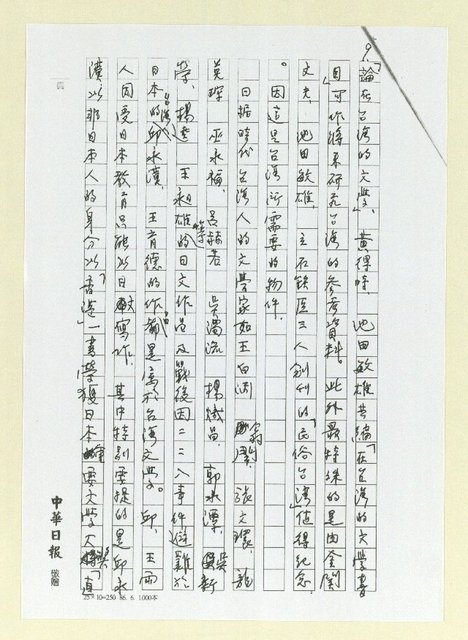 9.「論在台灣的文學」、黃得時、池田敏雄共編「在台灣的文學書
目可作將來研究台灣的參考資料。此外最特殊的是由金關
丈夫、池田敏雄、立石鐵臣三人創刊的「民俗台灣」值得紀念
。因這是台灣所需要的物件。
日據時代台灣人的文學家如王白淵、翁鬧、張文環、龍
英宗、巫永福、呂赫若、吳濁流、楊熾昌、郭水潭、吳新
榮、楊逵、王永雄等的日文作品及戰後因二二八事件避難於
日本的邱永漢、王育德的作品都是屬於台灣文學。邱、王兩
人因受日本教育只能以日文寫作。其中特別要提的是邱永
漢以非日本人的身分以「香港」一書榮獲日本重要文學大獎「直
中華日報 敬贈
25×10=250 86.6.1000本